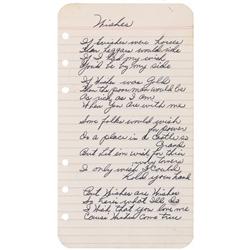 Wishes
If wishes were horses
Then beggars would ride
If I had my wish
You'd be by my side
If Wishes was Gold
Then the poor man would be
As rich as I am
When you are with me
Some folks would wish
for power
Or a place in a Castle so
Grand
But let em wish for their
I only wish I could
hold your hand
But Wishes are Wishes
So here what I'll do
I Wish that you love me
Cause Wishes Come true